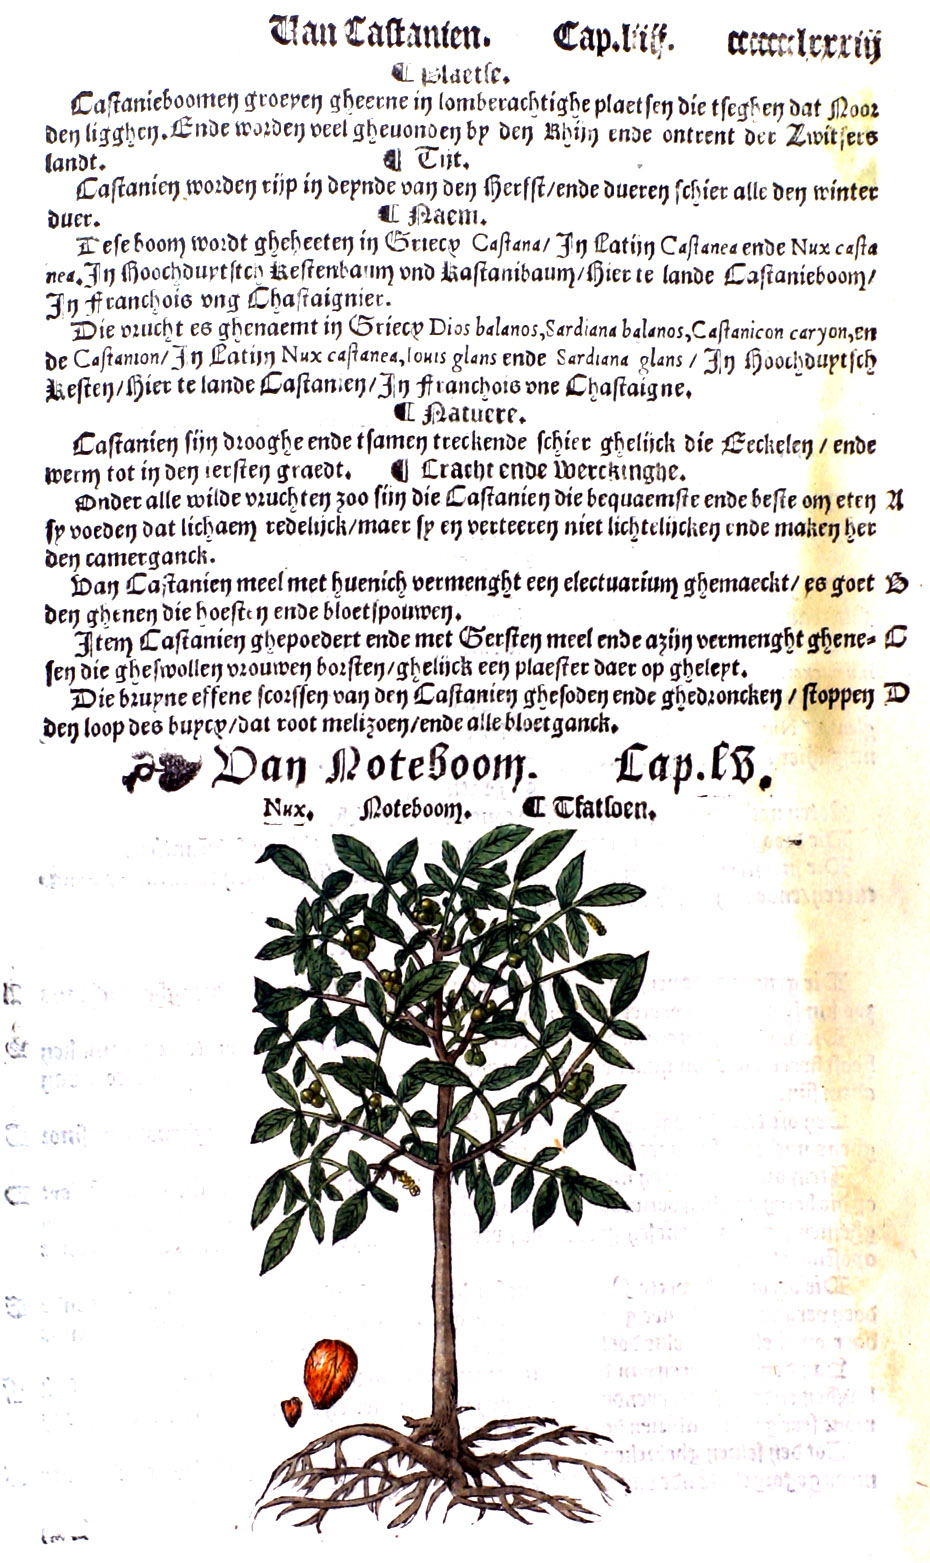 Van Castanien. Cap.liiij. ccccccclxxxiij
¶ Plaetse.
Castanieboomen groeyen gheerne in lomberachtighe plaetsen die tseghen dat Noor
den ligghen. Ende worden veel gheuonden by den Rhijn ende ontrent der Zwitsers
landt. ¶ Tijt.
Castanien worden rijp in deynde van den Herfst/ende dueren schier alle den winter
duer. ¶ Naem.
Dese boom wordt gheheeten in Griecx Castana/ In Latijn Castanea ende Nux casta
nea. In Hoochduytsch Kestenbaum vnd Kastanibaum/Hier te lande Castanieboom/
In Franchois vng Chastaignier.
Die vrucht es ghenaemt in Griecx Dios balanos, Sardiana balanos, Castanicon caryon, en
de Castanion/ In Latijn Nux castanea, Iouis glans ende Sardiana glans / In Hoochduytsch
Kesten/Hier te lande Castanien/In Franchois vne Chastaigne.
¶ Natuere.
Castanien sijn drooghe ende tsamen treckende schier ghelijck die Eeckelen / ende
werm tot in den iersten graedt. ¶ Cracht ende Werckinghe.
Onder alle wilde vruchten zoo sijn die Castanien die bequaemste ende beste om eten A
sy voeden dat lichaem redelijck/maer sy en verteeren niet lichtelijcken ende maken her
den camerganck.
Van Castanien meel met huenich vermenght een electuarium ghemaeckt/ es goet B
den ghenen die hoesten ende bloetspouwen.
Item Castanien ghepoedert ende met Gersten meel ende azijn vermenght ghene= C
sen die gheswollen vrouwen borsten/ghelijck een plaester daer op gheleyt.
Die bruyne effene scorssen van den Castanien ghesoden ende ghedroncken / stoppen D
den loop des buycx/dat root melizoen/ende alle bloetganck.
Van Noteboom. Cap.lv.
Nux. Noteboom. ¶ Tfatsoen.